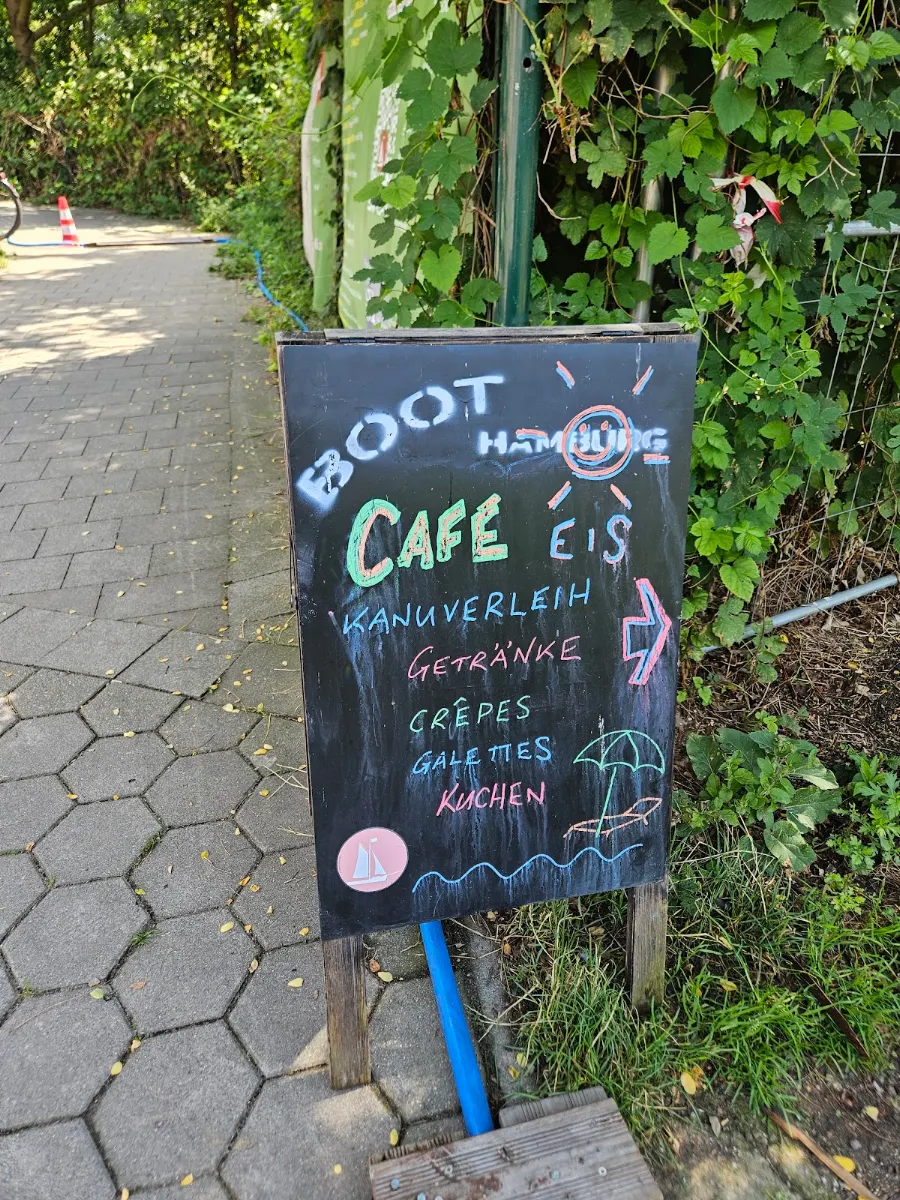 BOOT
HAMBURG
CAFÉ
EIS
KANUVERLEIH
GETRÄNKE
CRÊPES
GALETTES
KUCHEN